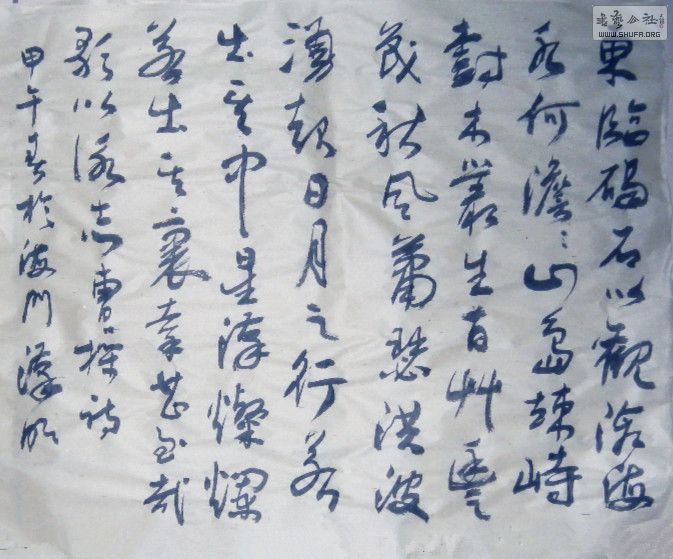 東臨碣石以觀滄海
水何澹〻山島竦峙
樹木叢生百艸豐
茂秋風蕭瑟洪波
湧起日月之行若
出其中星漢燦爛
若出其裏幸甚至哉
歌以詠志曹操詩
甲午春於海門漢明
書藝公社
WWW.SHUFA.ORG